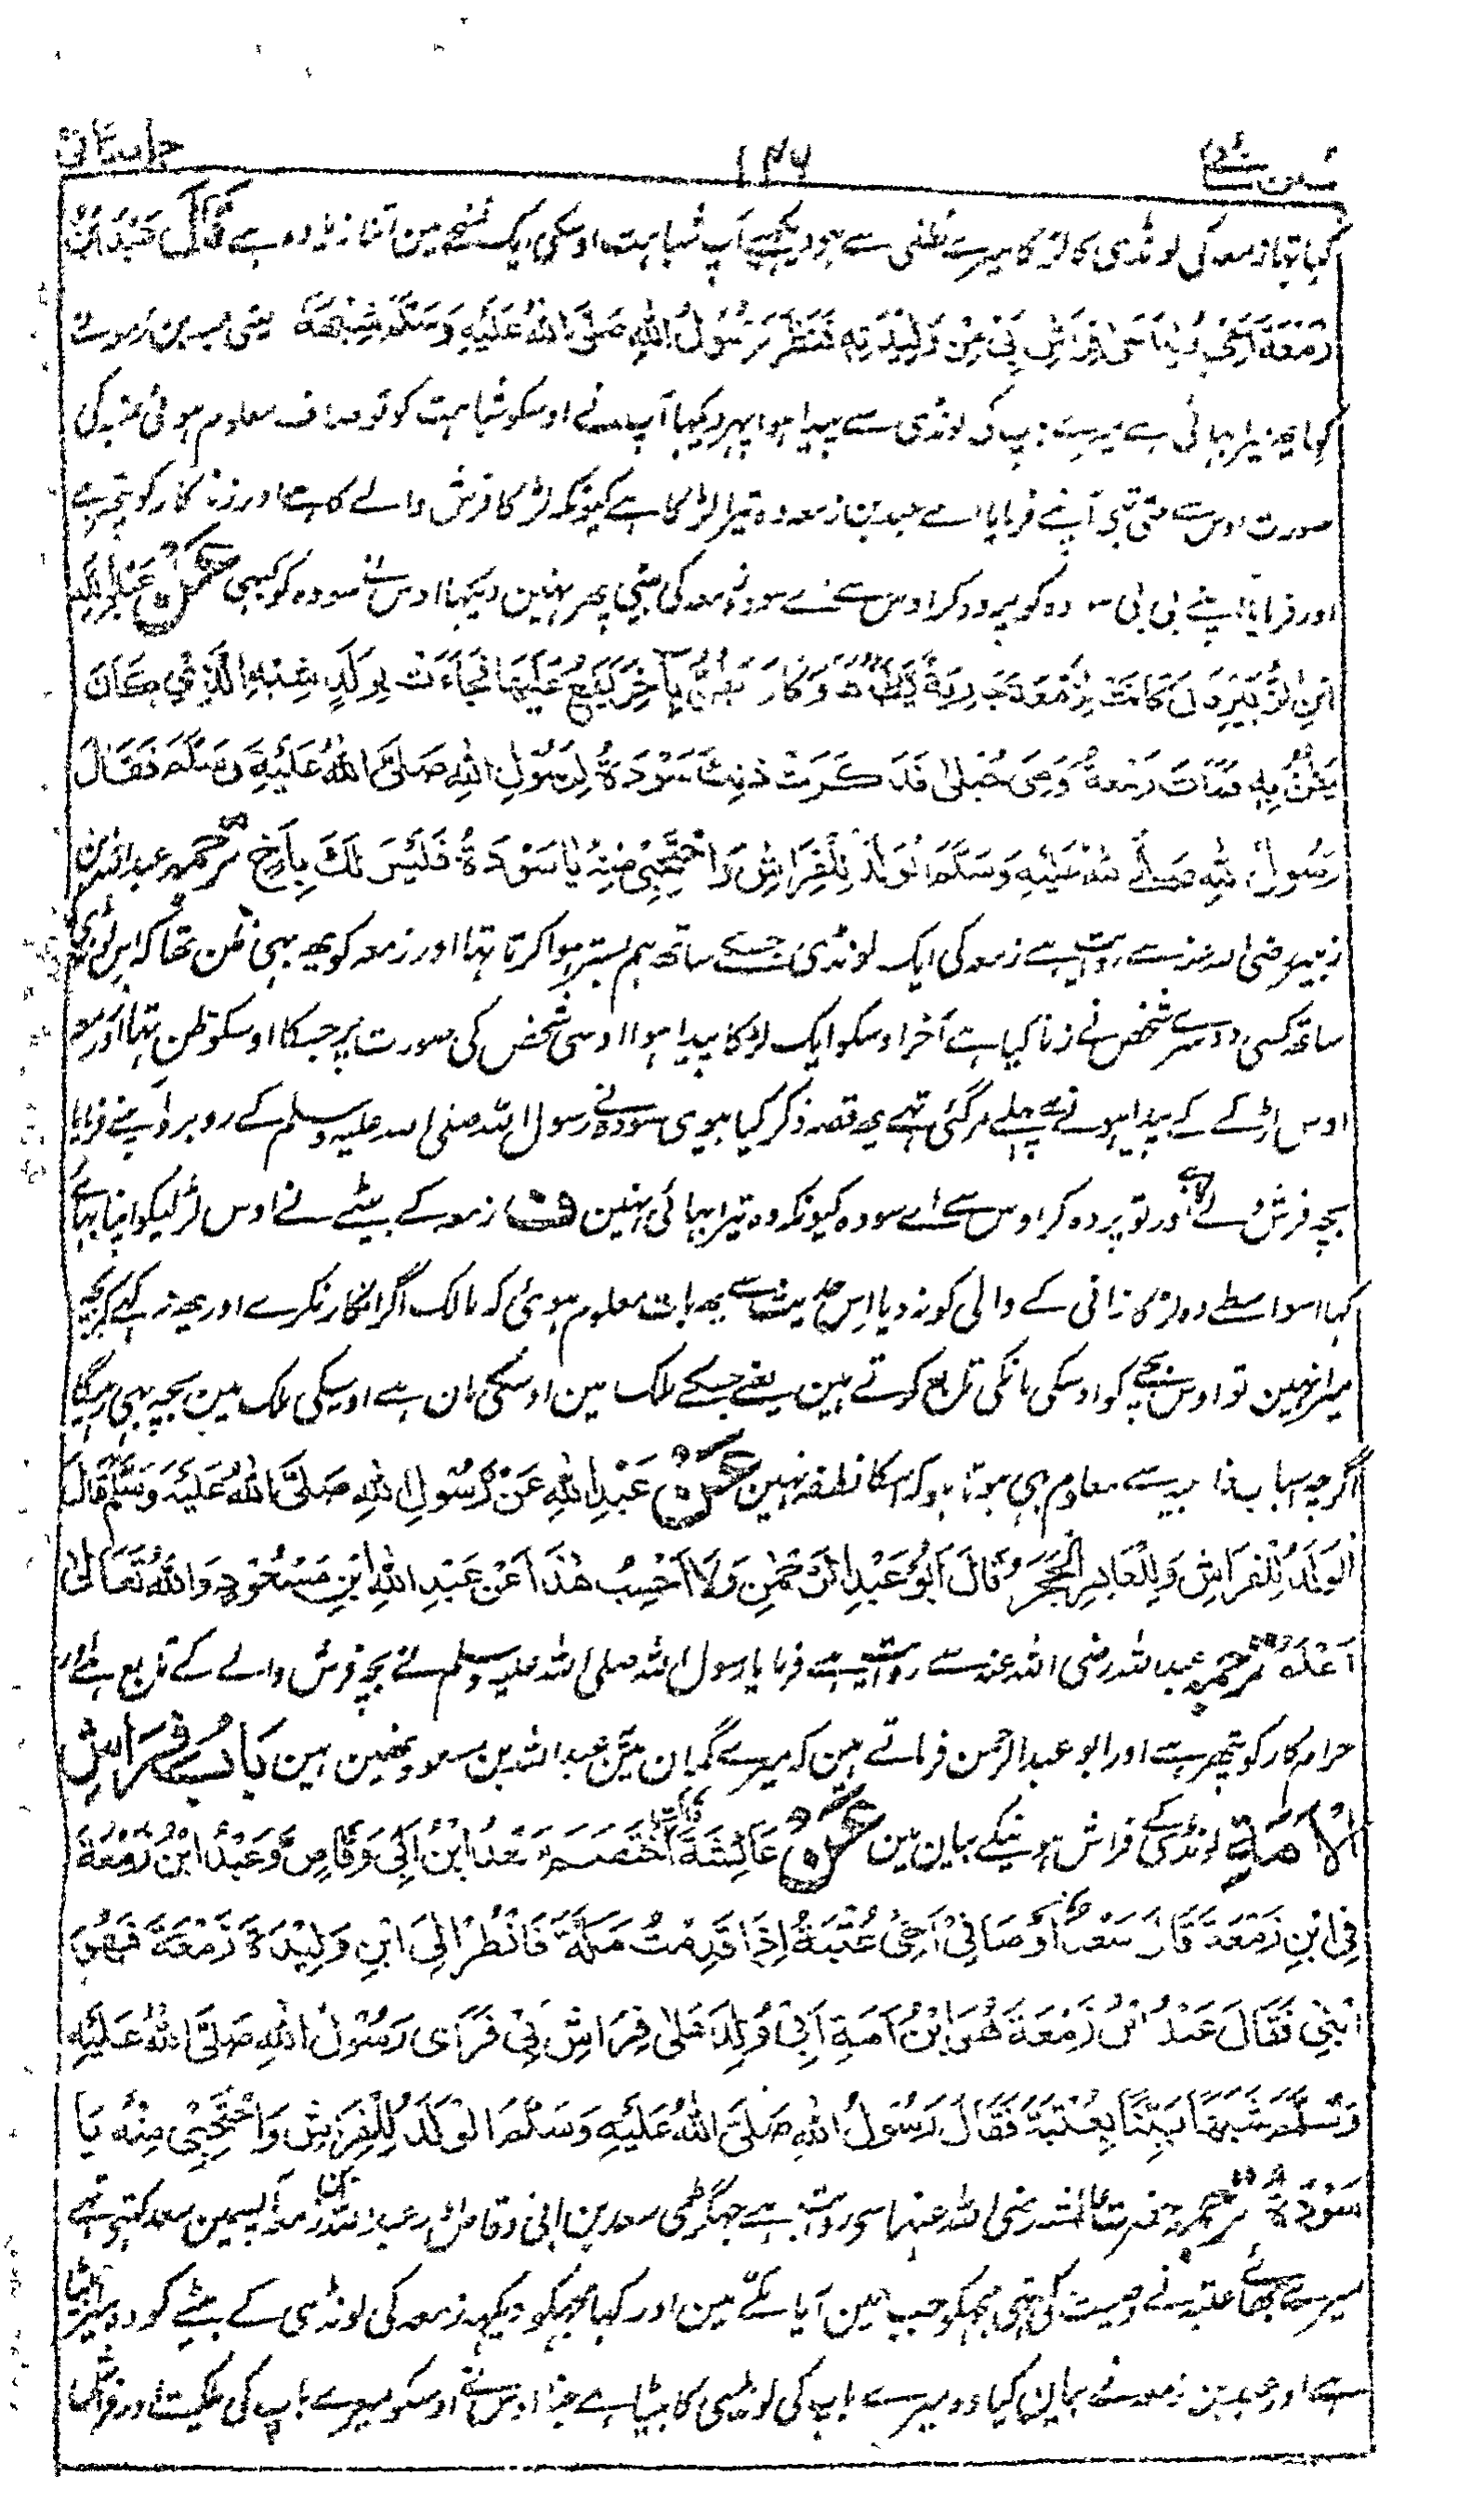 جلد ثانی ۱۴۶ سنن نسائی
کہا تھا زمعہ کی لونڈی کا لڑکا میرے نطفی سے ہو دیکھیے آپ شباہت اوسکی ایک نسخے مین اتنا زیادہ ہے فَقَالَ عَبْدُ ابْنُ
زَمْعَةَ اَخِيْ وُلِدَ عَلٰى فِرَاشِ اَبِيْ مِنْ وَلِيْدَتِهٖ فَنَظَرَ رَسُوْلُ اللهِ صَلَّى اللهُ عَلَيْهِ وَسَلَّمَ شَبَهَهٗ یعنی عبد بن زمعہ نے
کہا یہ میرا بہائی ہے میرے باپ کی لونڈی سے پیدا ہوا پہر دیکہا آپ نے اوسکو شباہت کو تو صاف معلوم ہوئی عتبہ کی
صورت اوس سے ملتی تھی آپنے فرمایا اے عبد بن زمعہ وہ تیرا لڑکا ہے کیونکہ لڑکا فرش والے کا ہے اور زنا کار کو پتھر ہے
اور فرمایا اپنے بی بی سودہ کو پردہ کر اوس سے اے سودہ زمعہ کی بیٹی پھر نہین دیکہا اوس نے سودہ کو کبھی عَنْ عَبْدِ اللهِ
ابْنِ الزُّبَيْرِ قَالَ كَانَتْ لِزَمْعَةَ جَارِيَةٌ يَطَؤُهَا وَكَانَ يَظُنُّ بِاٰخَرَ يَقَعُ عَلَيْهَا فَجَاءَتْ بِوَلَدٍ شِبْهِ الَّذِيْ كَانَ
يَظُنُّ بِهٖ فَمَاتَ زَمْعَةُ وَهِيَ حُبْلٰى فَذَكَرَتْ ذٰلِكَ سَوْدَةُ لِرَسُوْلِ اللهِ صَلَّى اللهُ عَلَيْهِ وَسَلَّمَ فَقَالَ
رَسُوْلُ اللهِ صَلَّى اللهُ عَلَيْهِ وَسَلَّمَ الْوَلَدُ لِلْفِرَاشِ وَاحْتَجِبِيْ مِنْهُ يَا سَوْدَةُ فَلَيْسَ لَكَ بِاَخٍ ترجمہ عبد اللہ بن
زبیر رضی اللہ عنہ سے روایت ہے زمعہ کی ایک لونڈی جسکے ساتھ ہم بستر ہوا کرتا تہا اور زمعہ کو یہ بہی ظن تھا کہ اس لونڈی کے
ساتھ کسی دوسرے شخص نے زنا کیا ہے آخر اوسکو ایک لڑکا پیدا ہوا اوسی شخص کی صورت پر جسکا اوسکو ظن تہا اور زمعہ
اوس لڑکے کے پیدا ہونے سے پہلے مر گئی تہے یہ قصہ ذکر کیا بیوی سودہ نے رسول اللہ صلی اللہ علیہ وسلم کے روبرو آپنے فرمایا
بچہ فرش والے کا ہے اور تو پردہ کر اوس سے اے سودہ کیونکہ وہ تیرا بہائی نہین ف زمعہ کے بیٹے نے اوس لڑکیکو اپنا بہائی
کہا اسواسطے وہ لڑکا زانی کے والی کو نہ دیا اس حدیث سے یہ بات معلوم ہوئی کہ مالک اگر انکار نکرے اور یہ نہ کہے کہ بچہ
میرا نہین تو اوس بچے کو اوسکی مانکی تابع کرتے ہین یعنے جسکے ملک مین اوسکی مان ہے اوسیکی ملک مین بچہ بہی رہیگا
اگرچہ اسباب سے معلوم بہی ہوتا ہو کہ اسکا نطفہ نہین عَنْ عَبْدِ اللهِ عَنْ رَسُوْلِ اللهِ صَلَّى اللهُ عَلَيْهِ وَسَلَّمَ قَالَ
الْوَلَدُ لِلْفِرَاشِ وَلِلْعَاهِرِ الْحَجَرُ قَالَ اَبُوْ عَبْدِ الرَّحْمٰنِ وَلَا اَحْسِبُ هٰذَا عَنْ عَبْدِ اللهِ ابْنِ مَسْعُوْدٍ وَاللهُ تَعَالٰى
اَعْلَمُ ترجمہ عبد اللہ رضی اللہ عنہ سے روایت ہے فرمایا رسول اللہ صلی اللہ علیہ وسلم نے بچہ فرش والے کے تابع ہے اور
حرام کار کو پتھر ہے اور ابو عبد الرحمن فرماتے ہین کہ میرے گمان مین عبد اللہ بن مسعود نہین ہین بَابُ فِرَاشِ
الْاَمَةِ لونڈی کے فراش ہونیکے بیان مین عَنْ عَائِشَةَ قَالَتْ اخْتَصَمَ سَعْدُ ابْنُ اَبِيْ وَقَّاصٍ وَعَبْدُ ابْنُ زَمْعَةَ
فِي ابْنِ زَمْعَةَ قَالَ سَعْدٌ اَوْصَانِيْ اَخِيْ عُتْبَةُ اِذَا قَدِمْتُ مَكَّةَ فَانْظُرْ اِلَى ابْنِ وَلِيْدَةِ زَمْعَةَ فَهُوَ
ابْنِيْ فَقَالَ عَبْدُ ابْنُ زَمْعَةَ هُوَ ابْنُ اَمَةِ اَبِيْ وُلِدَ عَلٰى فِرَاشِ اَبِيْ فَرَاٰى رَسُوْلُ اللهِ صَلَّى اللهُ عَلَيْهِ
وَسَلَّمَ شَبَهًا بَيِّنًا بِعُتْبَةَ فَقَالَ رَسُوْلُ اللهِ صَلَّى اللهُ عَلَيْهِ وَسَلَّمَ الْوَلَدُ لِلْفِرَاشِ وَاحْتَجِبِيْ مِنْهُ يَا
سَوْدَةُ ترجمہ حضرت عائشہ رضی اللہ عنہا سی روایت ہے جہگڑی سعد بن ابی وقاص اور عبد بن زمعہ آپسمین سعد کہتی تہے
میرے بھائی عتبہ نے وصیت کی تہی مجہکو جب مین آیا مکے مین اور کہا مجہکو دیکہہ زمعہ کی لونڈی کے بیٹے کو وہ میرا بیٹا
ہے اور عبد بن زمعہ نے بیان کیا وہ میرے باپ کی لونڈی کا بیٹا ہے جنا اوس نے اوسکو میرے باپ کی ملکیت اور فراش